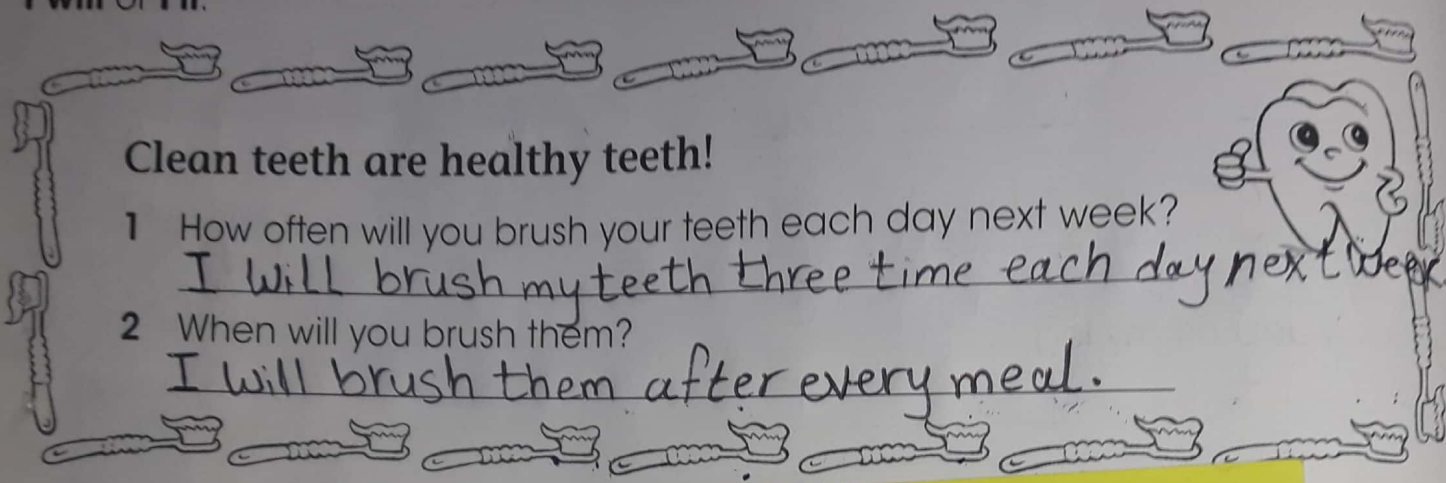 I will or I'll.
Clean teeth are healthy teeth!
1 How often will you brush your teeth each day next week?
I Will brush my teeth three time each day next week
2 When will you brush them?
I will brush them after every meal.